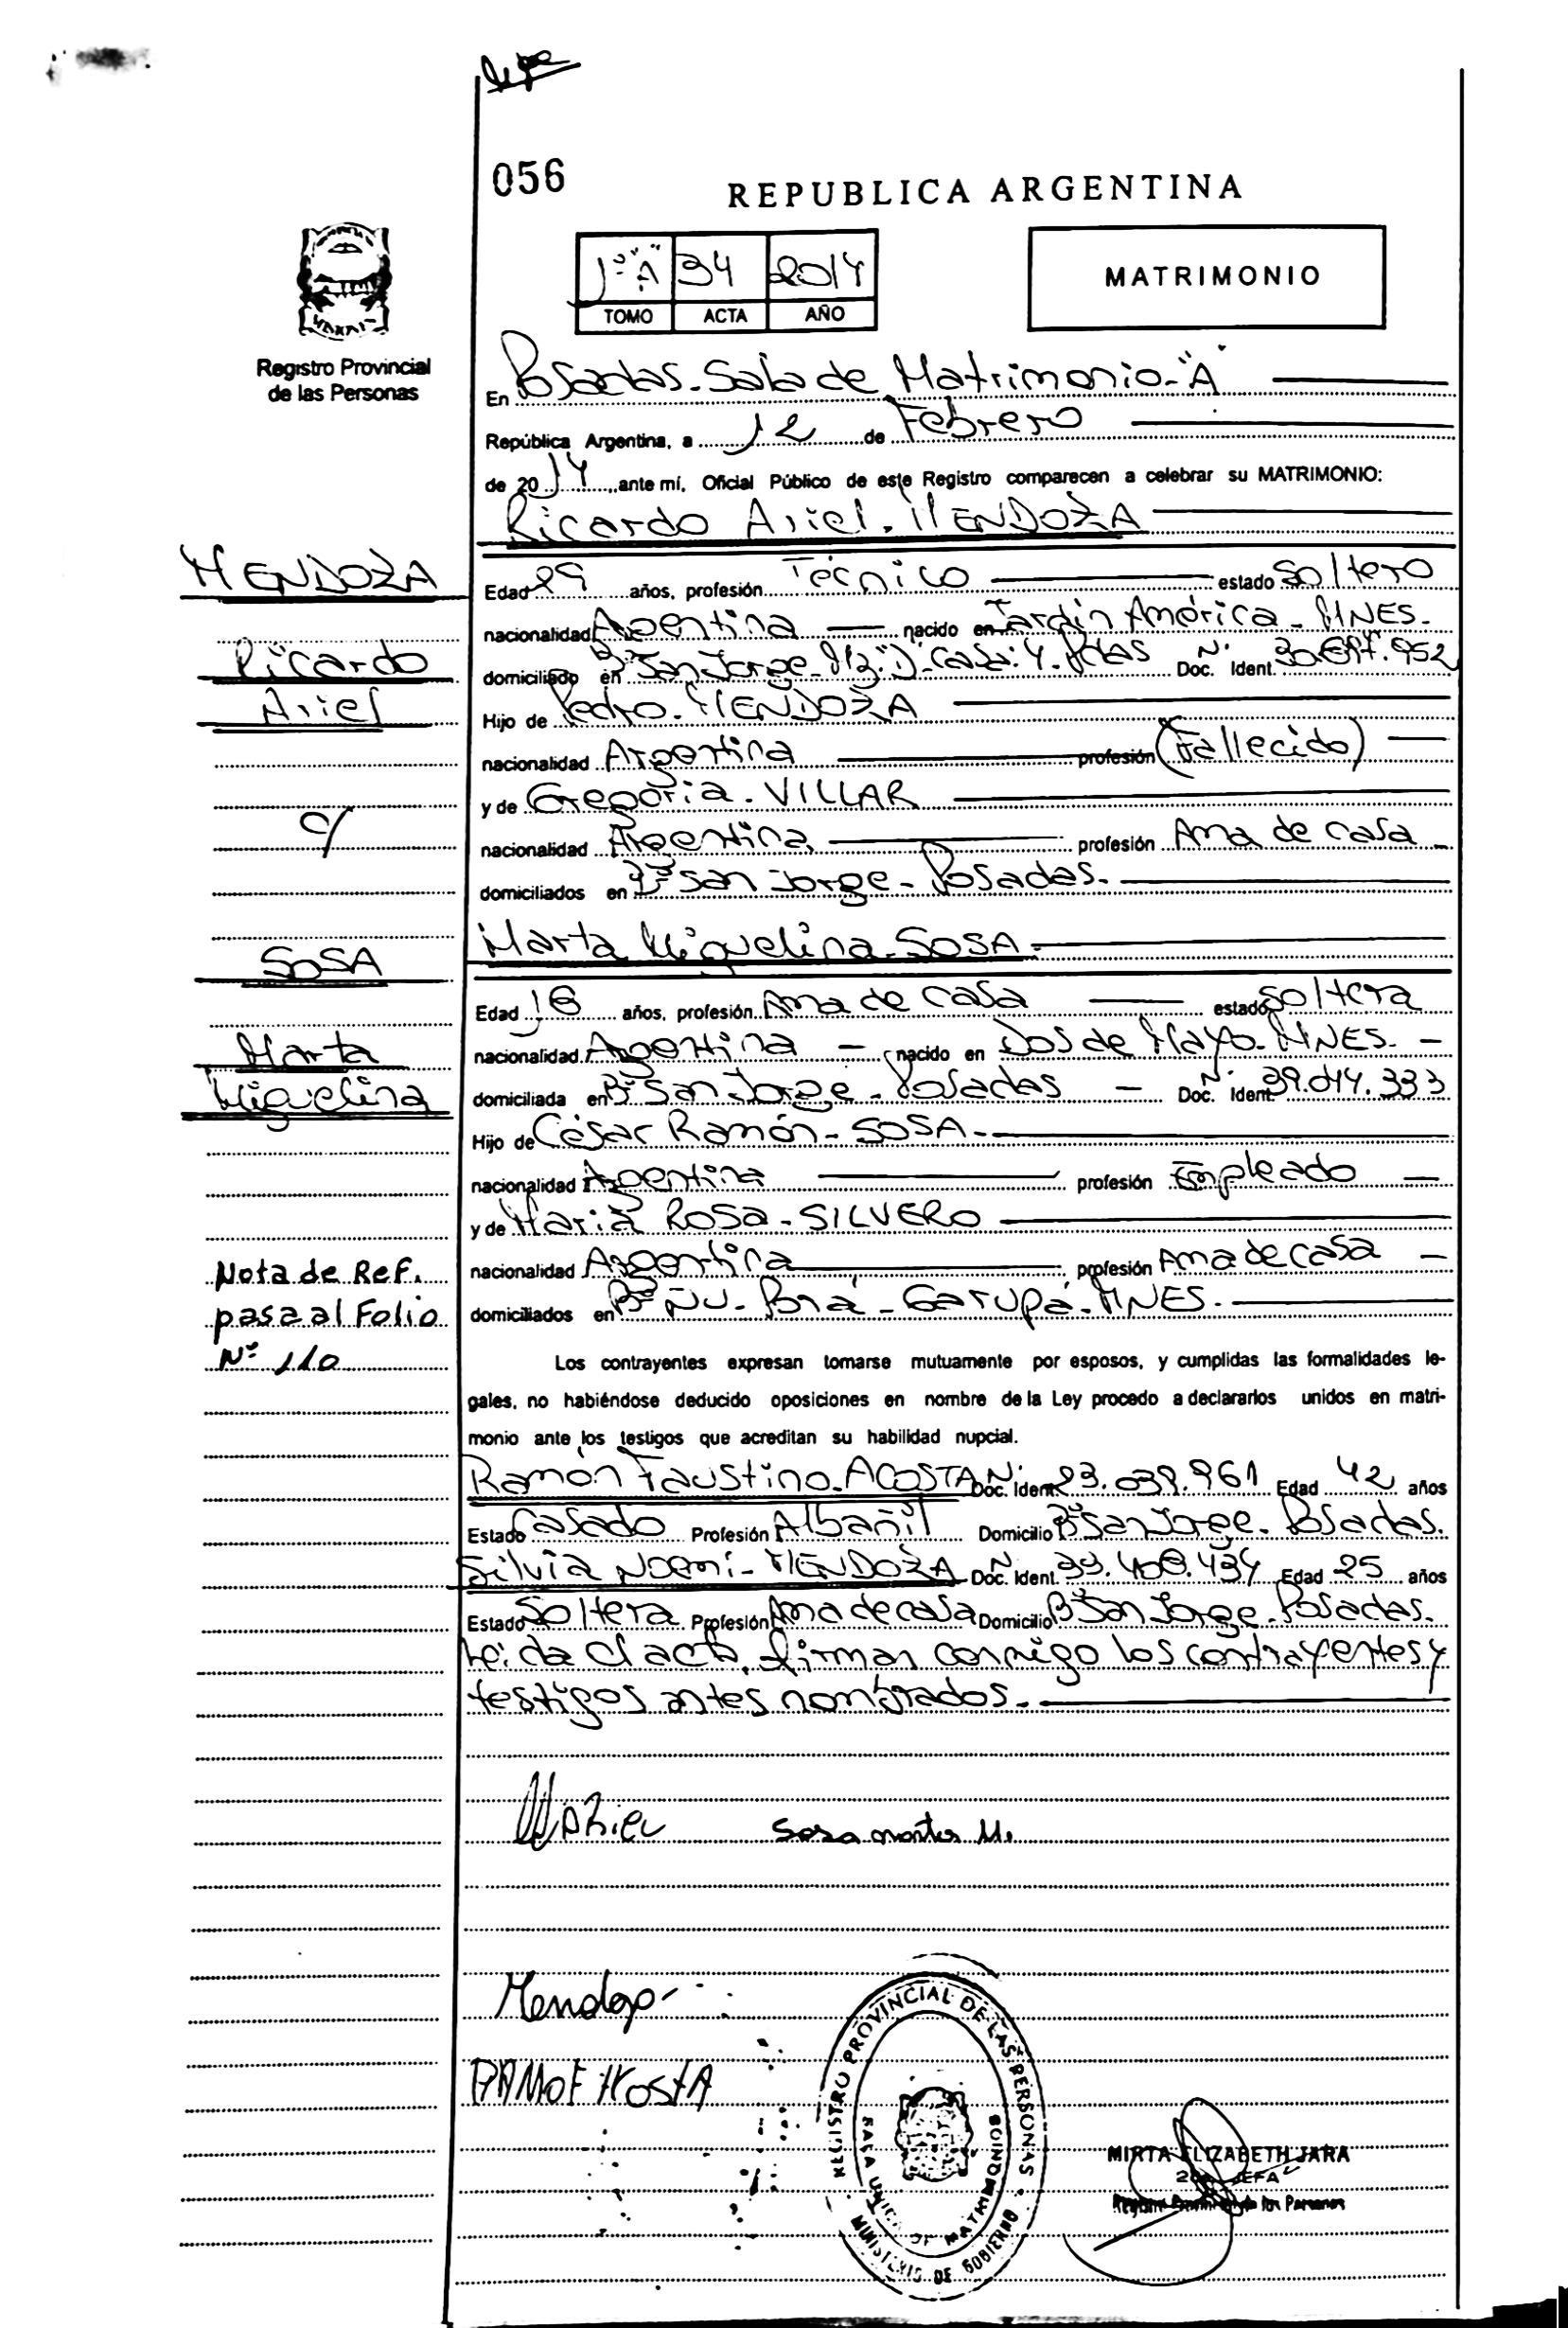 056
REPUBLICA ARGENTINA
1º "A" 34 2014
TOMO ACTA AÑO
MATRIMONIO
Registro Provincial
de las Personas
En Posadas-Sala de Matrimonio-"A"
República Argentina, a 12 de Febrero
de 2014, ante mí, Oficial Público de este Registro comparecen a celebrar su MATRIMONIO:
Ricardo Ariel-MENDOZA
MENDOZA
Ricardo
Ariel
c/
SOSA
Marta
Miguelina
Nota de Ref.
pasa al Folio
Nº 110
Edad 29 años, profesión Técnico estado Soltero
nacionalidad Argentina nacido en Jardín América-MNES.
domiciliado en Bº San Jorge-Mz."D"-Casa:4-Pdas Doc. Ident. Nº 952
Hijo de Pedro-MENDOZA
nacionalidad Argentina profesión (Fallecido)
y de Gregoria-VILLAR
nacionalidad Argentina profesión Ama de casa
domiciliados en Bº San Jorge-Posadas.
Marta Miguelina-SOSA
Edad 18 años, profesión Ama de casa estado Soltera
nacionalidad Argentina nacido en Dos de Mayo-MNES.
domiciliada en Bº San Jorge-Posadas Doc. Ident. Nº 39.014.333
Hijo de César Ramón-SOSA
nacionalidad Argentina profesión Empleado
y de María Rosa-SILVERO
nacionalidad Argentina profesión Ama de casa
domiciliados en Bº Ñu-Porá-Garupá-MNES.
Los contrayentes expresan tomarse mutuamente por esposos, y cumplidas las formalidades le-
gales, no habiéndose deducido oposiciones en nombre de la Ley procedo a declararlos unidos en matri-
monio ante los testigos que acreditan su habilidad nupcial.
Ramón Faustino-ACOSTA Doc. Ident. Nº 23.039.961 Edad 42 años
Estado Casado Profesión Albañil Domicilio Bº San Jorge-Posadas.
Silvia Noemí-MENDOZA Doc. Ident. Nº 33.408.434 Edad 25 años
Estado Soltera Profesión Ama de casa Domicilio Bº San Jorge-Posadas.
Leida el acta, firman conmigo los contrayentes y
testigos antes nombrados.
Sosa Marta M.
Mendoza
RAMOF ACOSTA
REGISTRO PROVINCIAL DE LAS PERSONAS
SALA UNICA DE MATRIMONIOS
MINISTERIO DE GOBIERNO
MIRTA ELIZABETH JARA
2da JEFA
Registro Provincial de las Personas